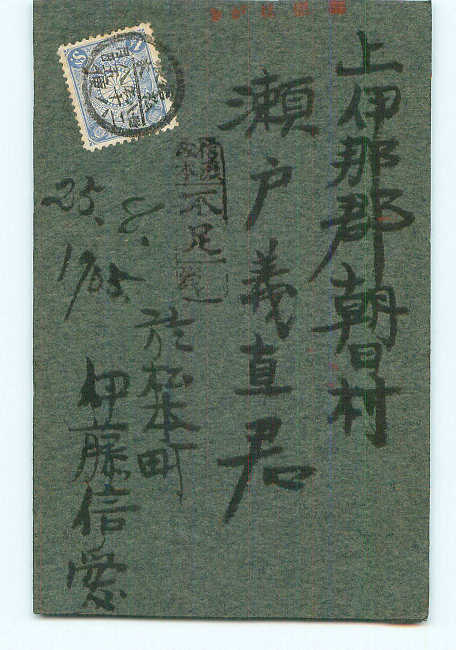 上伊那郡朝日村
瀬戸義直君
不足
25. 8. 1905.
於松本町
伊藤信愛